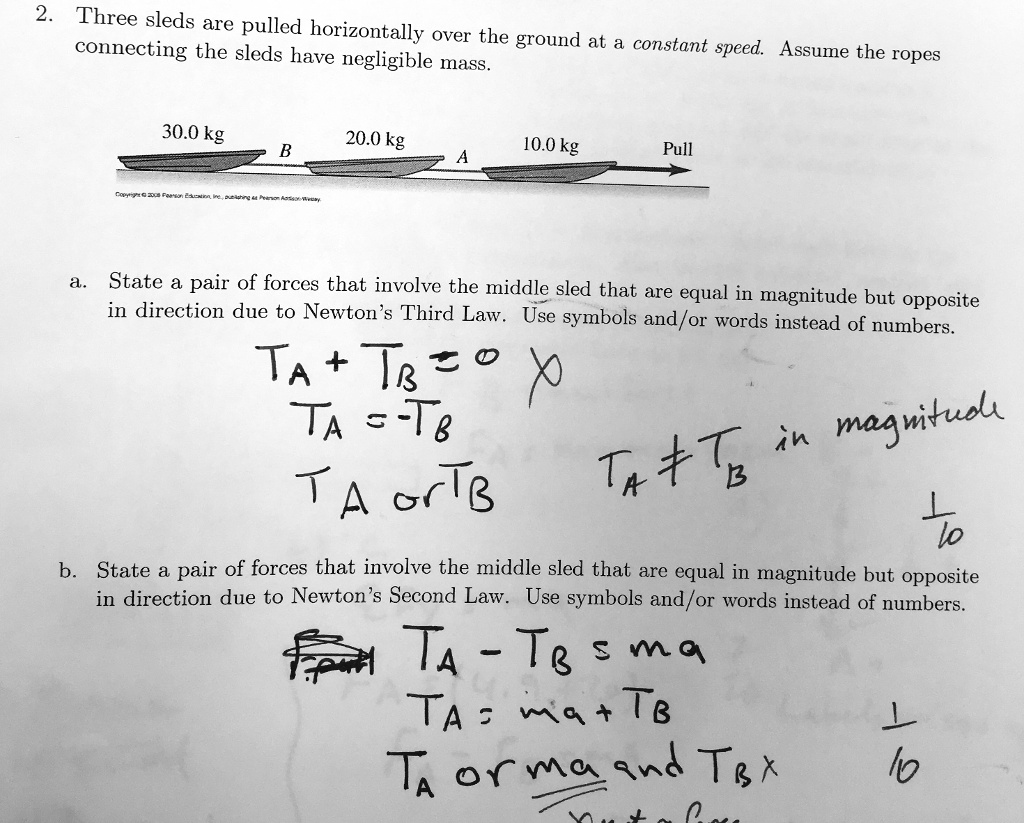 2. Three sleds are pulled horizontally over the ground at a constant speed. Assume the ropes
connecting the sleds have negligible mass.
30.0 kg B 20.0 kg A 10.0 kg Pull
Copyright © 2008 Pearson Education, Inc., publishing as Pearson Addison-Wesley.
a. State a pair of forces that involve the middle sled that are equal in magnitude but opposite
in direction due to Newton's Third Law. Use symbols and/or words instead of numbers.
TA + TB = 0 X
TA = -TB
TA ≠ TB in magnitude
TA or TB
1/10
b. State a pair of forces that involve the middle sled that are equal in magnitude but opposite
in direction due to Newton's Second Law. Use symbols and/or words instead of numbers.
TA - TB = ma
TA = ma + TB
1/10
TA or ma and TB X
not a force